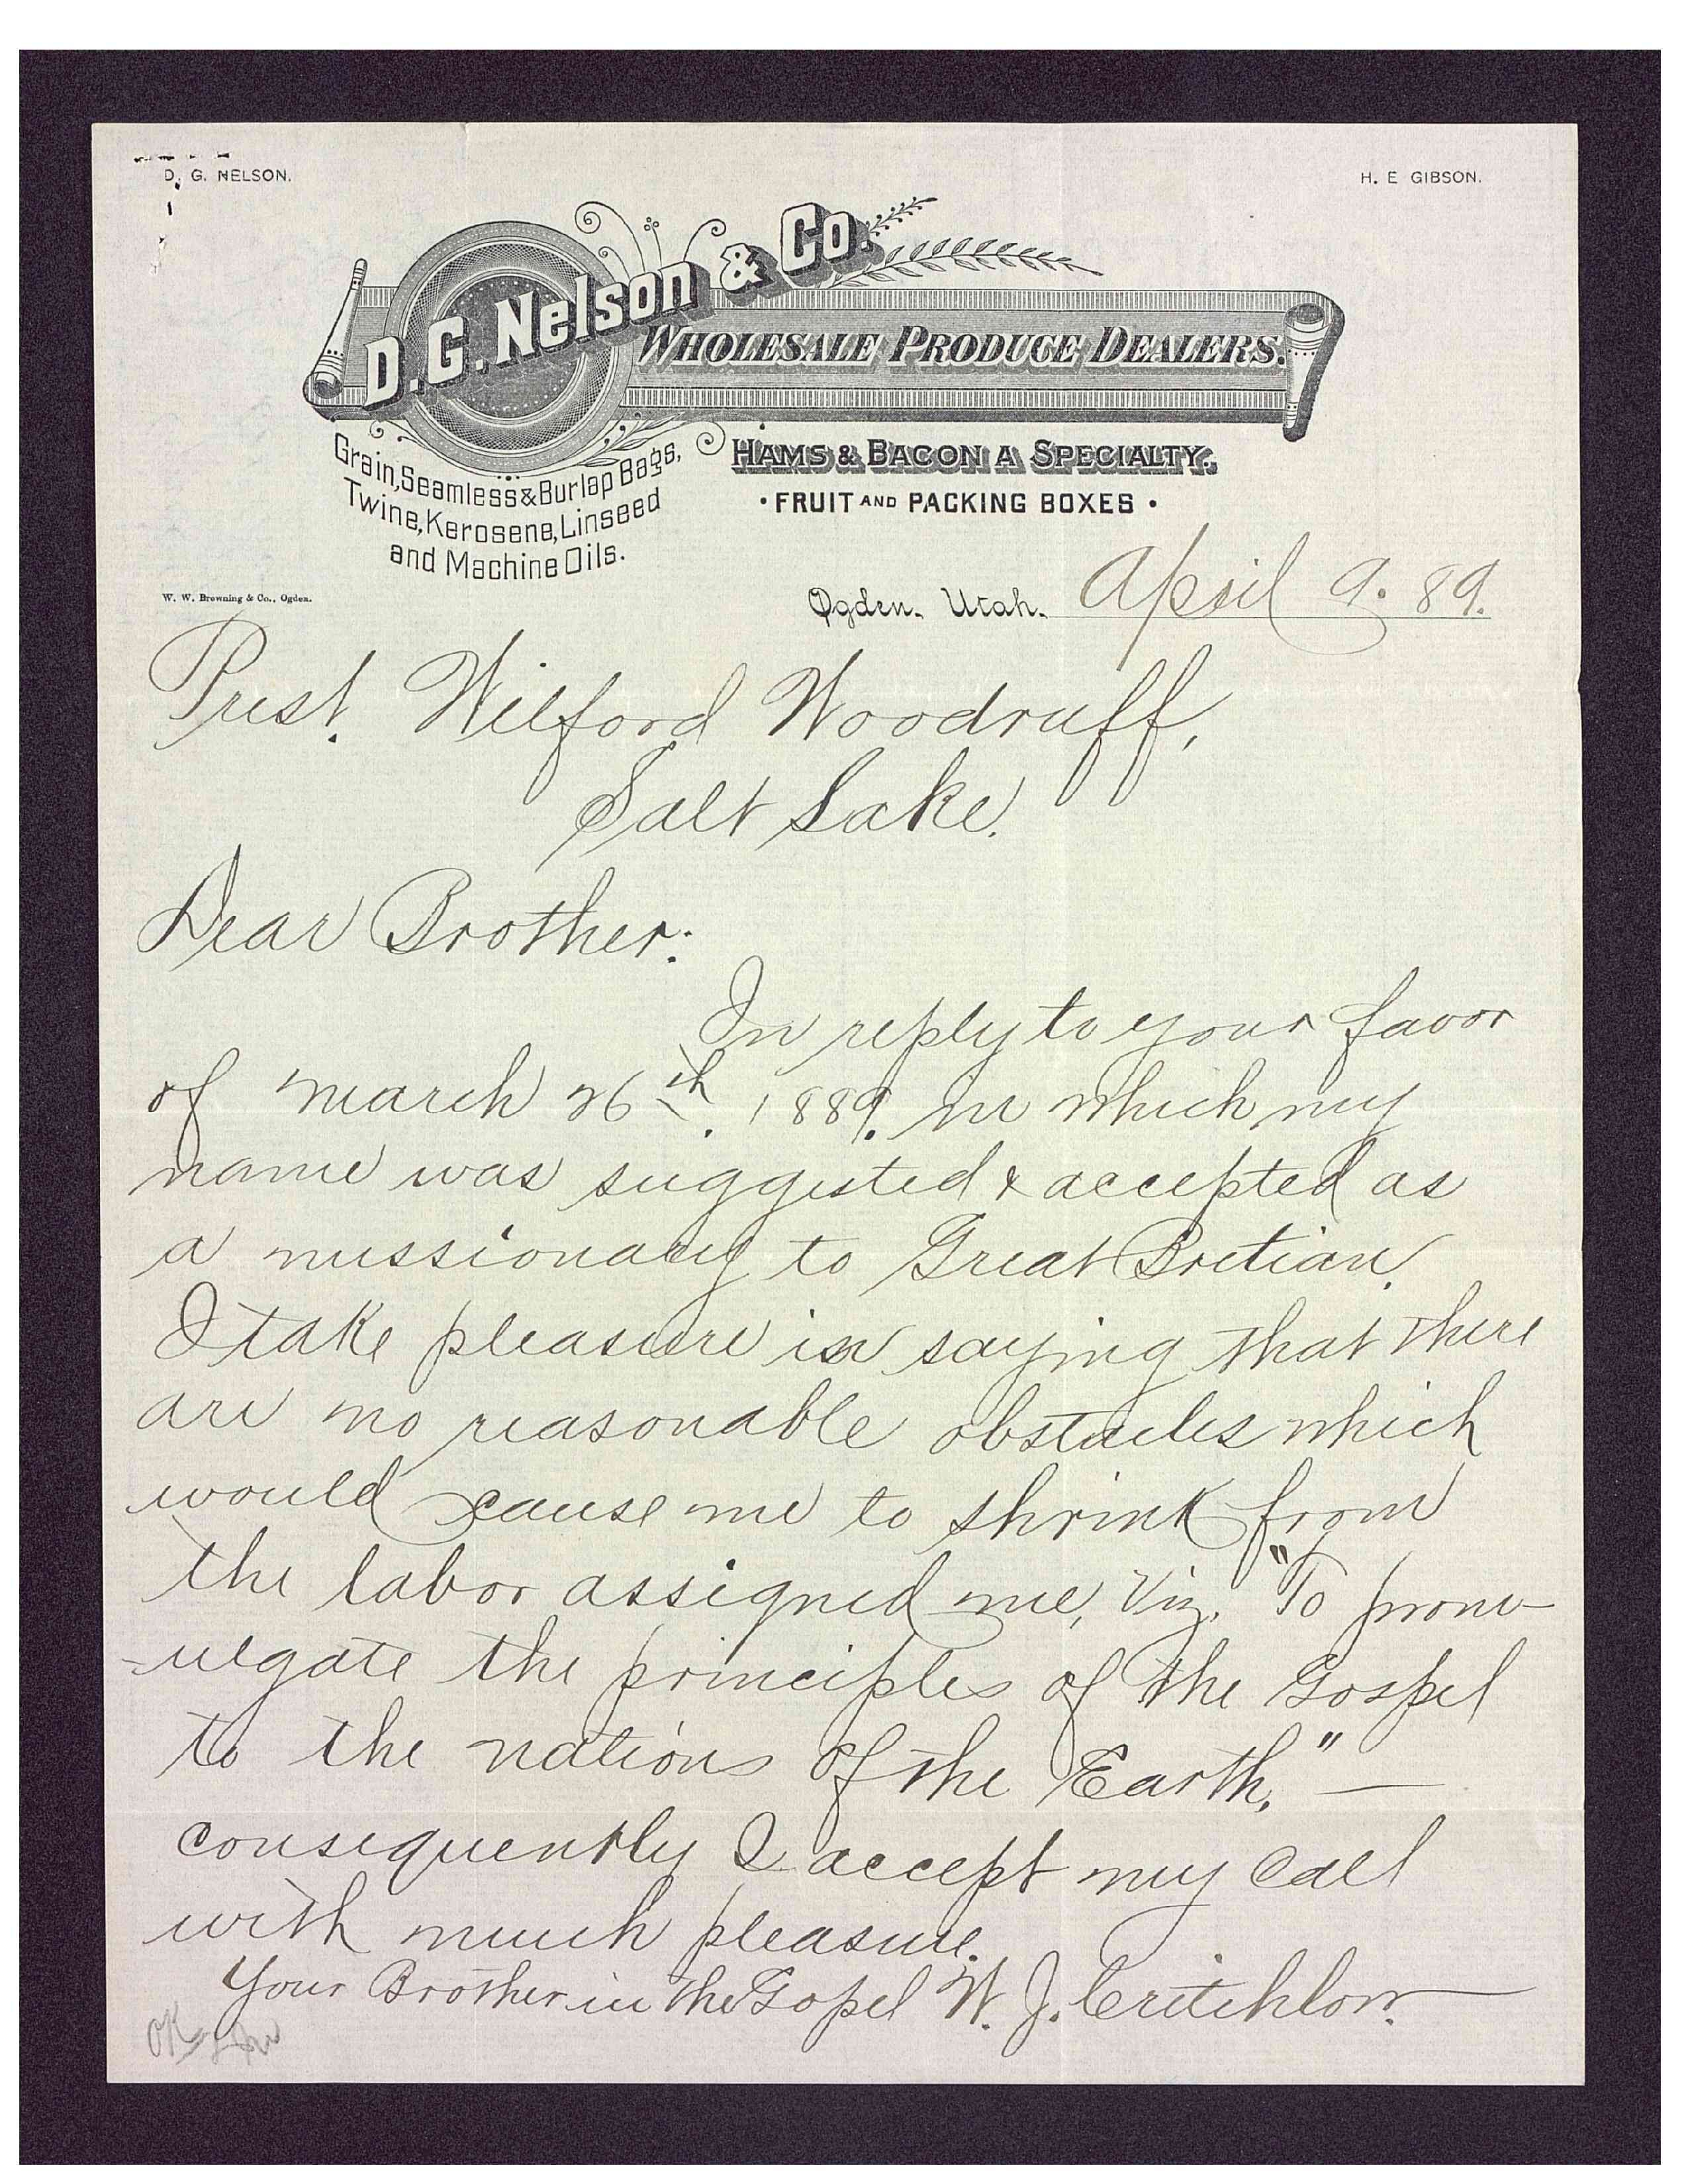 D. G. NELSON.
H. E GIBSON.
D. G. Nelson & Co.
WHOLESALE PRODUCE DEALERS.
Grain, Seamless & Burlap Bags,
Twine, Kerosene, Linseed
and Machine Oils.
HAMS & BACON A SPECIALTY.
• FRUIT AND PACKING BOXES •
W. W. Browning & Co., Ogden.
Ogden. Utah. April 9. 89.
Prest. Wilford Woodruff,
Salt Lake.
Dear Brother:
In reply to your favor
of march 26th. 1889. in which my
name was suggested & accepted as
a missionary to Great Bretian.
I take pleasure in saying that there
are no reasonable obstacles which
would cause me to shrink from
the labor assigned me, Viz. "To prom-
-ulgate the principles of the Gospel
to the nations of the Earth." —
consequently I accept my call
with much pleasure.
Your Brother in the Gopel W. J. Critchlow.
OK